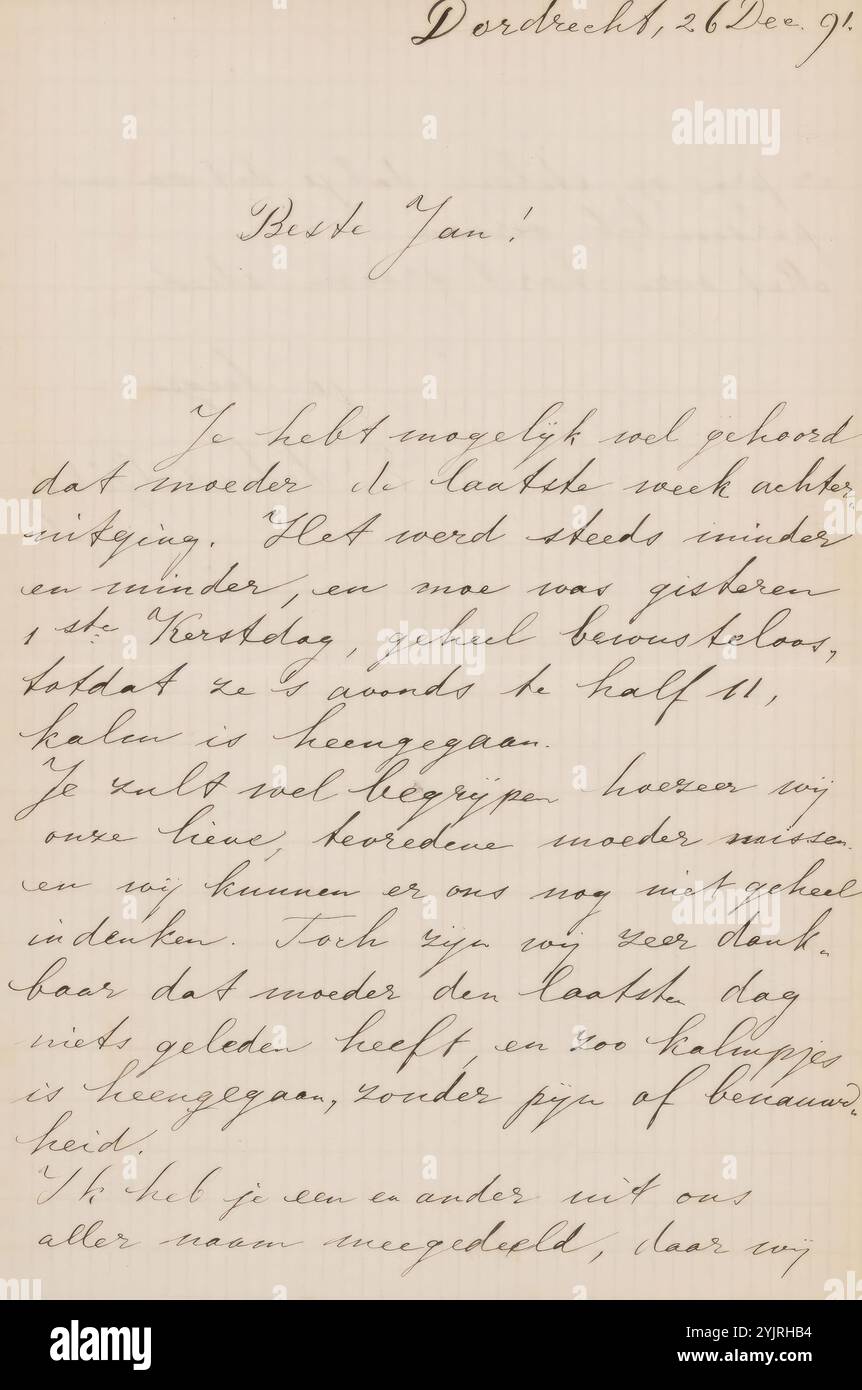 Dordrecht, 26 Dec. 91.
Beste Jan!
Je hebt mogelijk wel gehoord
dat moeder de laatste week achter„
uitging. Het werd steeds minder
en minder, en moe was gisteren
1ste Kerstdag, geheel bewusteloos,
totdat ze 's avonds te half 11,
kalm is heengegaan.
Je zult wel begrijpen hoezeer wij
onze lieve, tevredene moeder missen
en wij kunnen er ons nog niet geheel
indenken. Toch zijn wij zeer dank„
baar dat moeder den laatsten dag
niets geleden heeft, en zoo kalmpjes
is heengegaan, zonder pijn of benauwd„
heid.
Ik heb je een en ander uit ons
aller naam meegedeeld, daar wij
alamy
Image ID: 2YJRHB4
www.alamy.com